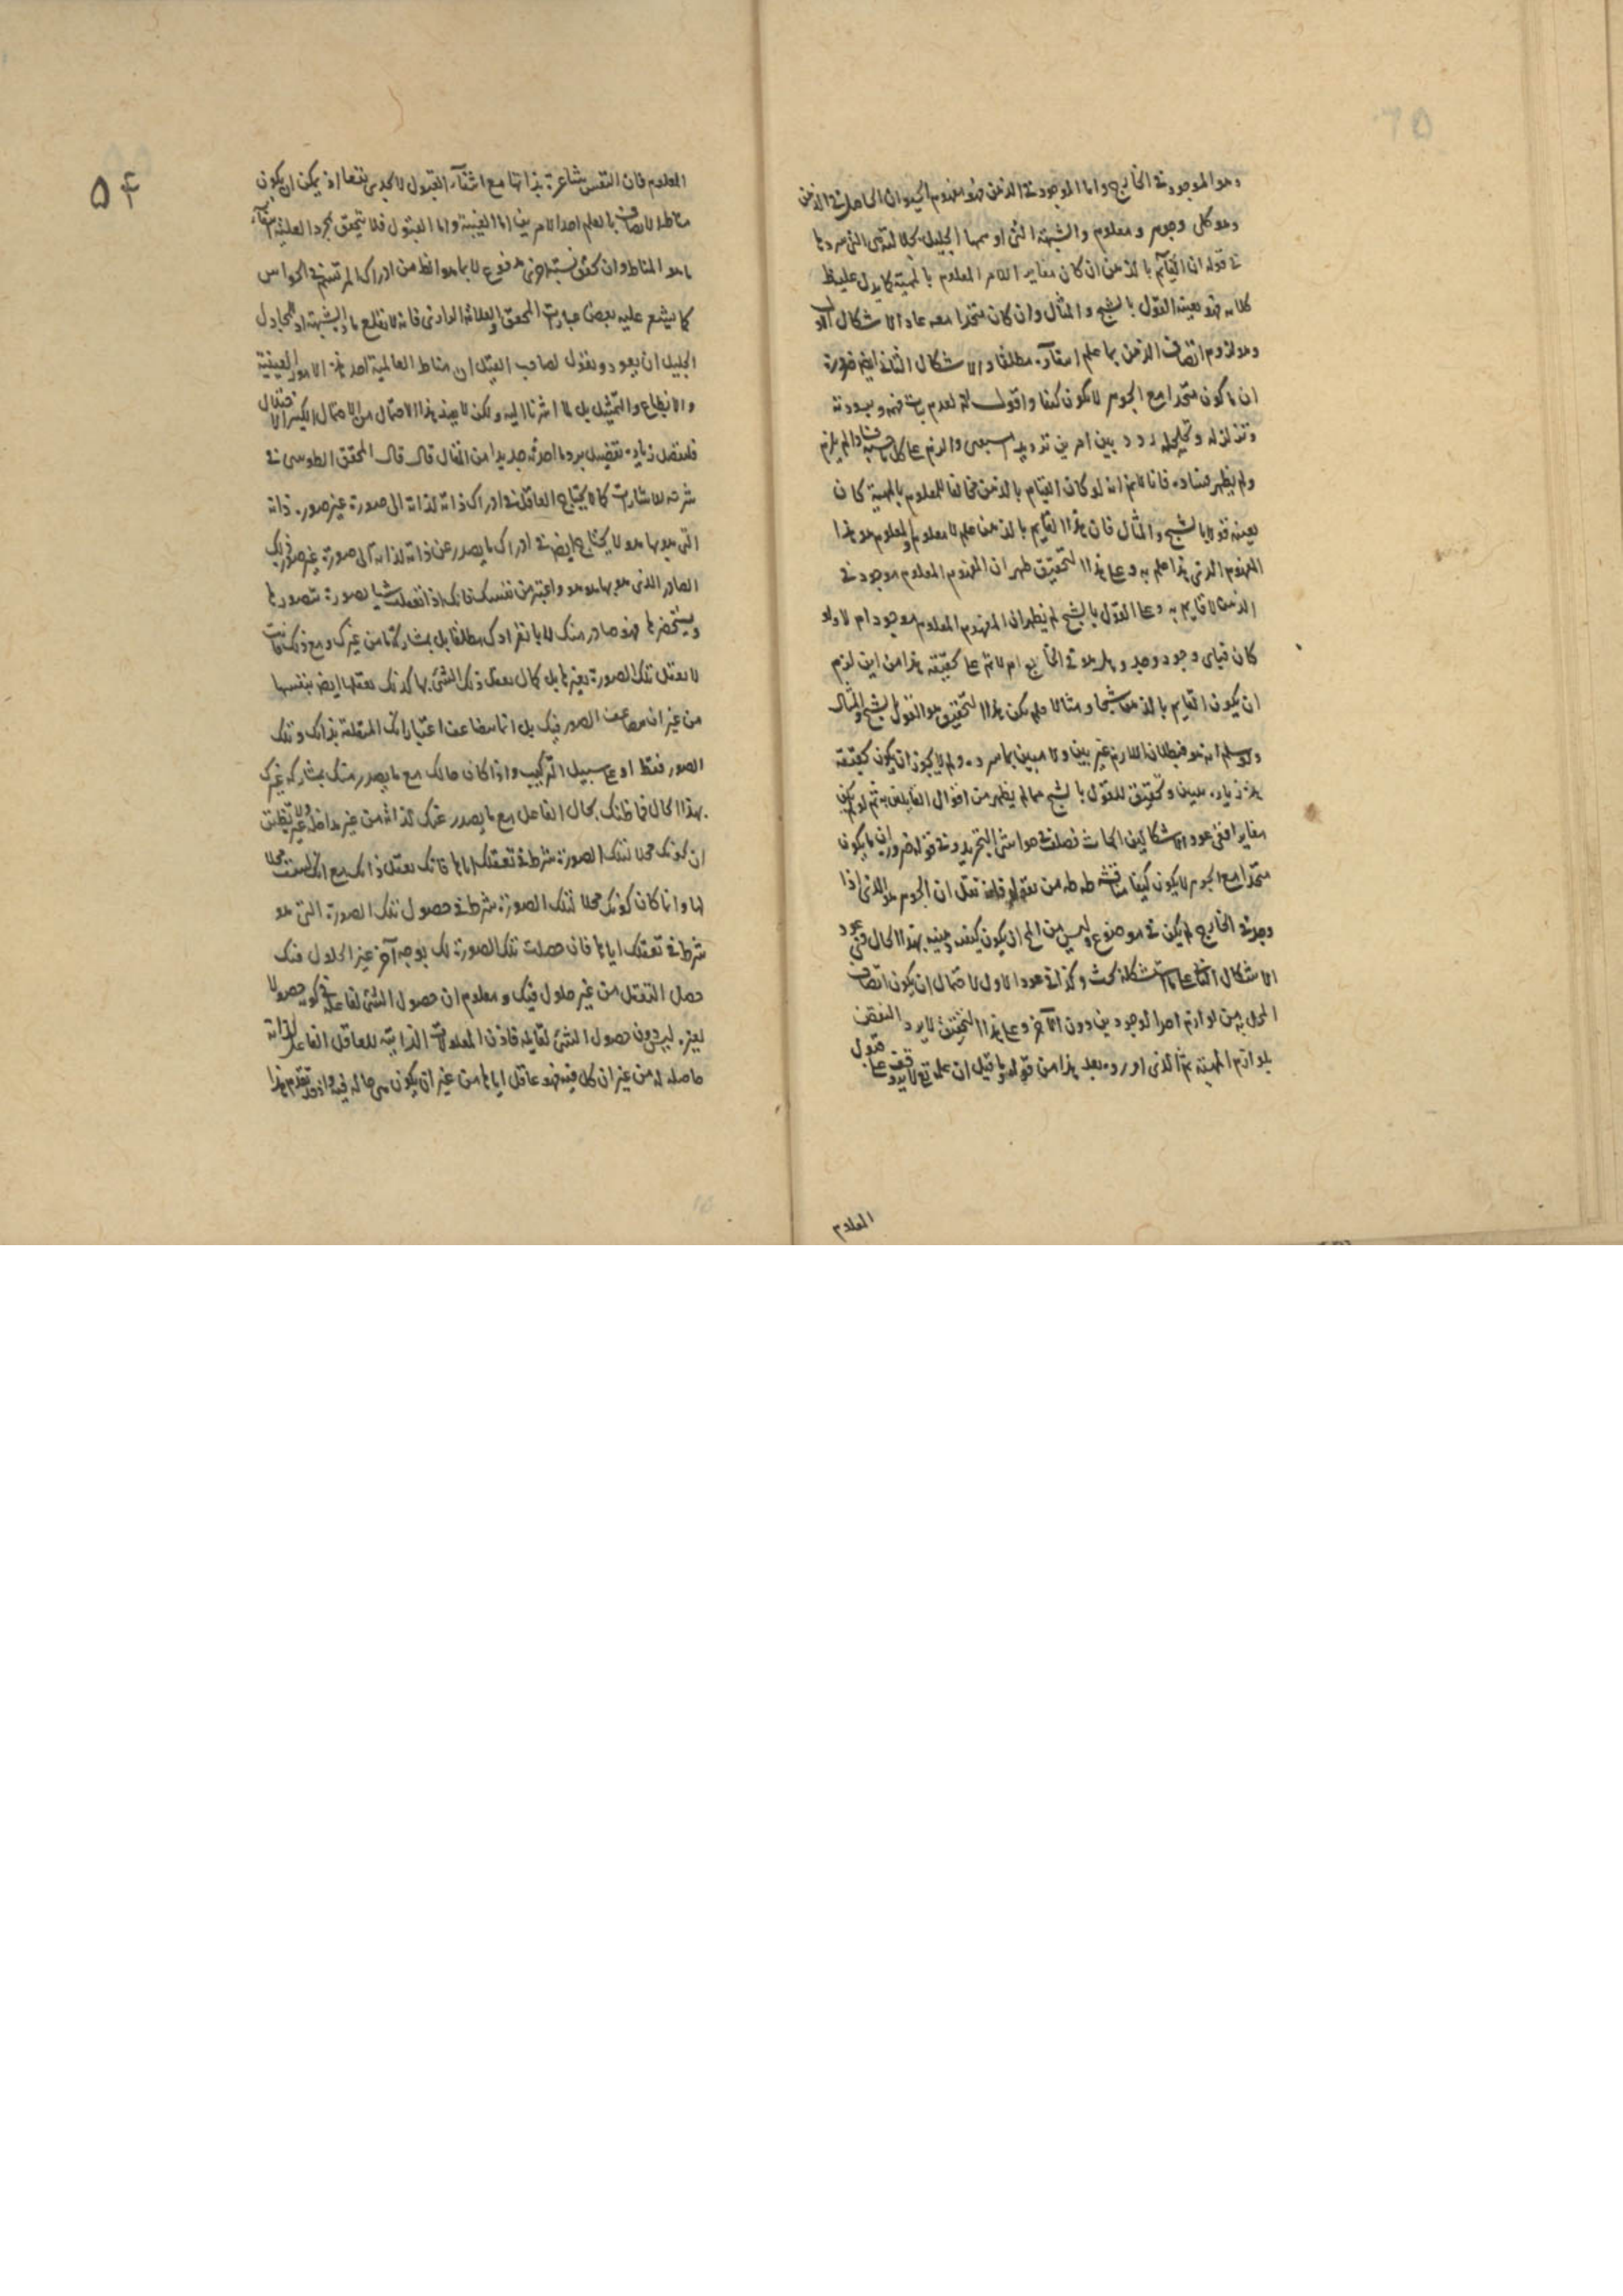 وهو الموجود في الخارج واما الموجود في الذهن فهو مفهوم الحيوان الحاصل في الذهن
وهو كلي وجوهر ومعلوم والشبهة التي اوسمها الجليل بجلا لته هي التي سردها
في قوله ان القائم بالذهن ان كان مغايرا للامر المعلوم بالمهية كما يدل عليه ظ
كلامه فهو بعينه القول بالشبح والمثال وان كان متحدا معه عاد الاشكال الاول
وهو لزوم اتصاف الذهن بما علم انتفاؤه مطلقا والاشكال الثاني ايضا ضرورة
ان ما كون متحدا مع الجوهر لا يكون كيفا واقول انه لعدم فهمه و
و ردد بين امرين ترديد والزم على كل ما لم يلزم
ولم يظهر فساده فانا لا نم انه لو كان القيام بالذهن مخالفا للمعلوم بالمهية كان
بعينه قولا بالشبح والمثال فان هذا القايم بالذهن علم لا معلوم والمعلوم هو هذا
المفهوم الذي هذا علم به وعلى هذا التحقيق ظهر ان المفهوم المعلوم موجود في
الذهن لا قايم به وعلى القول بالشبح لم يظهر ان المفهوم المعلوم موجود ام لا ولو
كان فباي وجود وجد وهل هو في الخارج ام لا ثم على حقيقة هذا من اين لزم
ان يكون القايم بالذهن شبحا ومثالا فلم يكن هذا التحقيق هو القول بالشبح والمثال
ولو سلم انه هو فبطلان اللازم غير بين ولا مبين بما سرده ولم لا يجوز ان يكون حقيقة
هذه زيادة تبيين وتحقيق للقول بالشبح مما لم يظهر من اقوال القايلين به ثم لو لم يكن
مغايرا ففي عود الاشكالين ابحاث فصلت في حواشي التجريد وفي قوله ضرورة ان ما يكون
متحدا مع الجوهر لا يكون كيفا مناقشة من تعقل ان الجوهر هو الذي اذا
وجد في الخارج لم يكن في موضوع وليس من المح ان يكون كيف وحينئذ بهذا الحال ففي عود
الاشكال الثاني على ما استشكله بحث وكذا في عود الاول لاحتمال ان يكون اتصاف
المحل به من لوازم احد الوجودين دون الآخر وعلى هذا التحقيق لا يرد النقض
بلوازم المهية ثم الذي اورده بعد هذا من قوله وما قيل ان علمه تع لا يتوقف على قبول
المعلوم
۵۴
المعلوم فان النفس شاعرة بذاتها مع انتفاء القبول لا يجدي نفعا اذ يمكن ان يكون
مناط الاتصاف بالعلم احد الامرين اما العينية واما القبول فلا يتحقق بمجرد العلية انتفاء
ما هو المناط وان كفى نسبة اخرى مدفوع لا بما هو افظ من ادراك لم ترتسم في الحواس
كما يشهد عليه بعض عبارت المحقق والعلامة الدواني فانه لا يقلع مادة الشبهة اذ المجادل
الجليل ان يعود ويقول لصاحب القيل ان مناط العالمية احد هذه الامور العينية
والانطباع والتمثيل بل لما اشرنا اليه ولكن لا بعيد هذا الاحتمال من الاحتمال الكثير الاختلال
فلنفصل زيادة تفصيل برد ما احدثه جديدا من المقال قال قال المحقق الطوسي في
شرحه للاشارات كما لا يحتاج العاقل في ادراك ذاته لذاته الى صورة غير صورة ذاته
التي هو بها هو لا يحتاج ايضا في ادراك ما يصدر عن ذاته لذاته الى صورة غير صورة ذلك
الصادر الذي هو بها هو هو واعتبر من نفسك فانك اذا تعقلت شيئا بصورة تتصورها
وتستحضرها فهو صادر منك لا بانفرادك مطلقا بل بمشاركة ما من غيرك ومع ذلك فانت
لا تعقل تلك الصورة بغيرها بل كما تعقل ذلك الشئ بها كذلك تعقلها ايضا بنفسها
من غير ان تتضاعف الصور فيك بل انما تتضاعف اعتباراتك المتعلقة بذاتك وتلك
الصور فقط او على سبيل التركيب واذا كان حالك مع ما يصدر منك بمشاركة غيرك
بهذا الحال فما ظنك بحال الفاعل مع ما يصدر عنه لذاته من غير مداخلة غيره ولا تظنن
ان كونك محلا لتلك الصورة شرط في تعقلك اياها فانك تعقل ذاتك مع انك لست محلا
لها وانما كان كونك محلا لتلك الصورة شرطا في حصول تلك الصورة التي هو
شرط في تعقلك اياها فان حصلت تلك الصورة لك بوجه آخر غير الحلول فيك
حصل التعقل من غير حلول فيك ومعلوم ان حصول الشئ لفاعله في كونه حصولا
لغيره ليس دون حصول الشئ لقابله فاذن المعلولات الذاتية للعاقل الفاعل لذاته
حاصلة له من غير ان تحل فيه فهو عاقل اياها من غير ان يكون هي حالة فيه واذ قد تقدم هذا